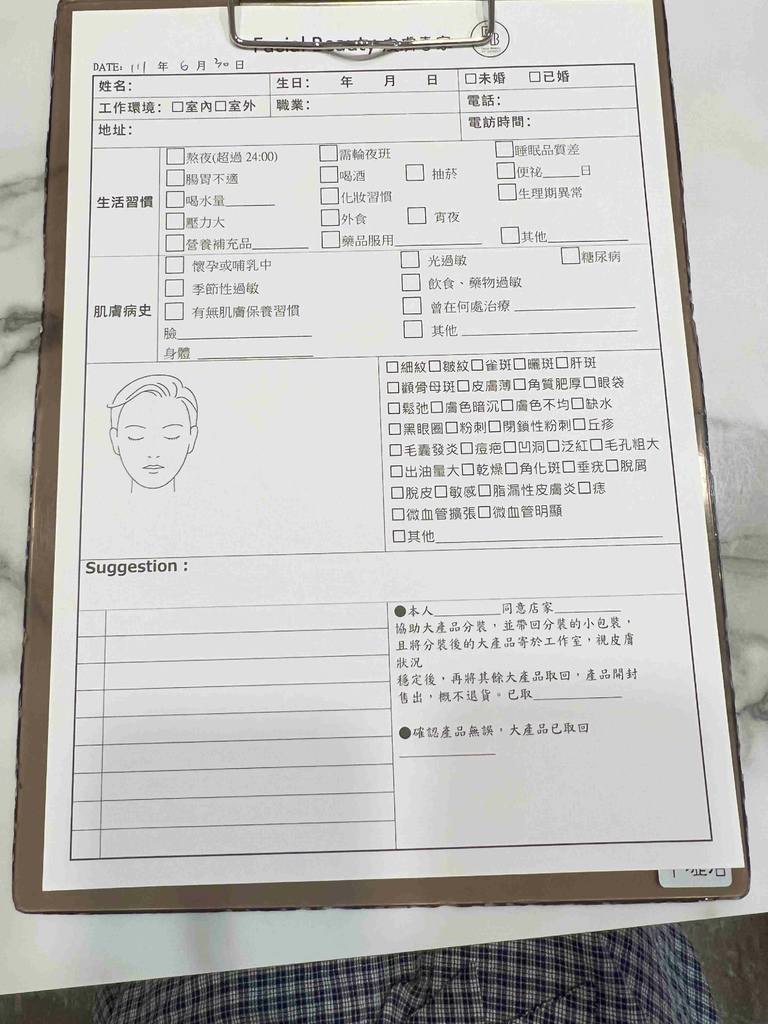 Facial Beauty
DATE: 111 年 6 月 30 日
姓名： 生日： 年 月 日 □未婚 □已婚
工作環境：□室內□室外 職業： 電話：
地址： 電訪時間：
生活習慣
□熬夜(超過 24:00) □需輪夜班 □睡眠品質差
□腸胃不適 □喝酒 □抽菸 □便祕____日
□喝水量________ □化妝習慣 □生理期異常
□壓力大 □外食 □宵夜
□營養補充品________ □藥品服用____________ □其他___________
肌膚病史
□懷孕或哺乳中 □光過敏 □糖尿病
□季節性過敏 □飲食、藥物過敏
□有無肌膚保養習慣 □曾在何處治療________________
臉___________________ □其他___________________________
身體________________
□細紋□皺紋□雀斑□曬斑□肝斑
□顴骨母斑□皮膚薄□角質肥厚□眼袋
□鬆弛□膚色暗沉□膚色不均□缺水
□黑眼圈□粉刺□閉鎖性粉刺□丘疹
□毛囊發炎□痘疤□凹洞□泛紅□毛孔粗大
□出油量大□乾燥□角化斑□垂疣□脫屑
□脫皮□敏感□脂漏性皮膚炎□痣
□微血管擴張□微血管明顯
□其他______________________________
Suggestion：
●本人__________同意店家__________
協助大產品分裝，並帶回分裝的小包裝，
且將分裝後的大產品寄於工作室，視皮膚
狀況
穩定後，再將其餘大產品取回，產品開封
售出，概不退貨。已取_____________
●確認產品無誤，大產品已取回
______________